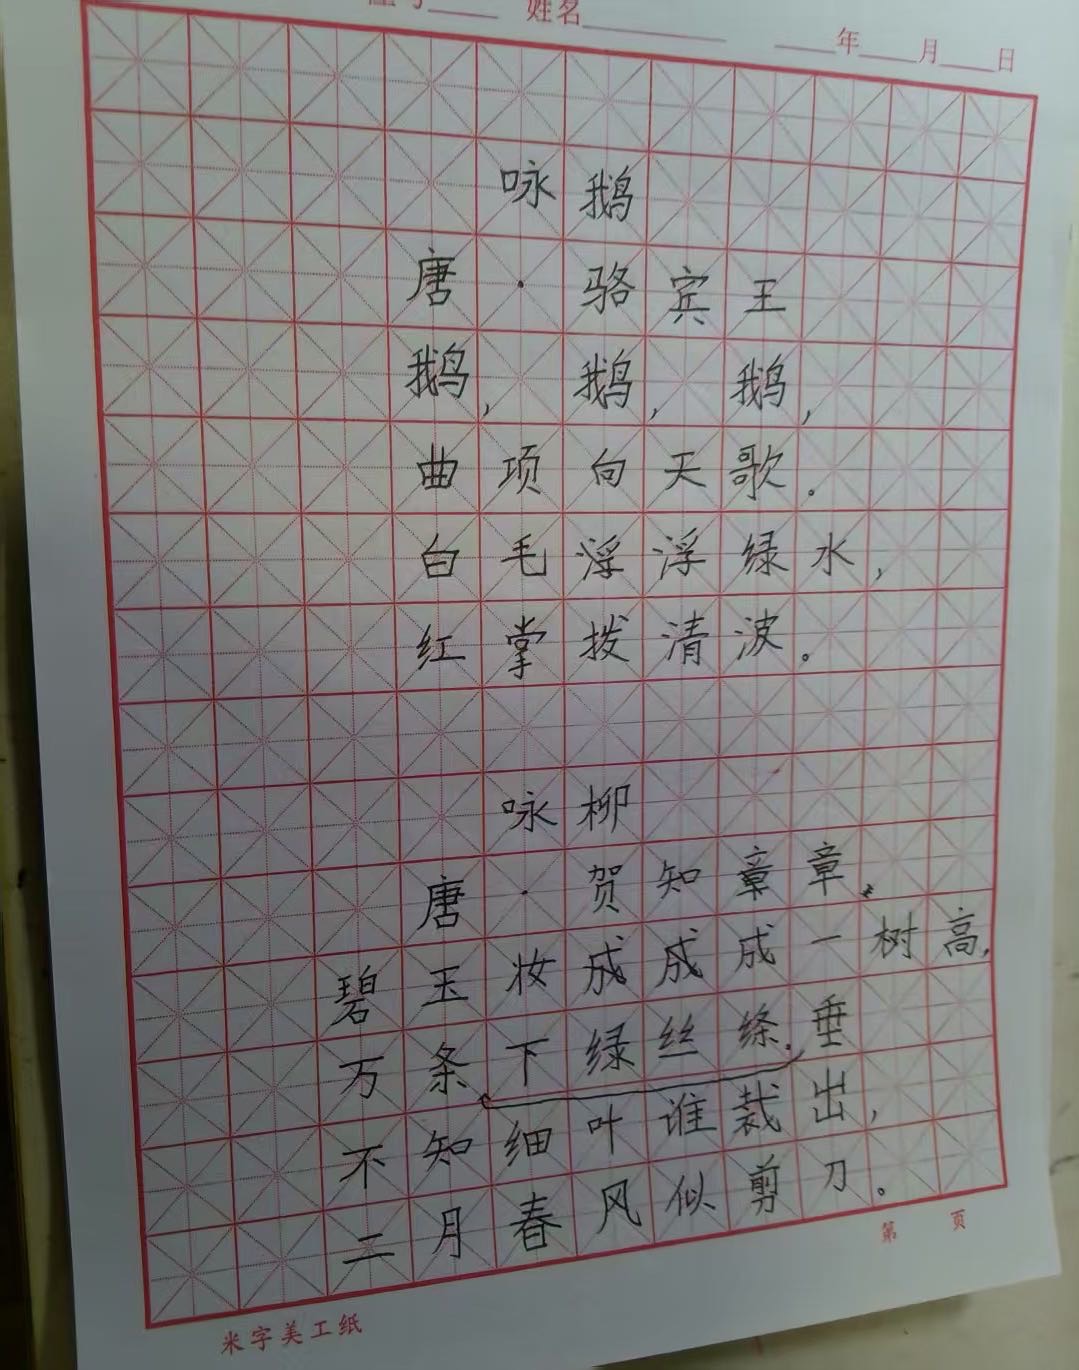 姓名
年 月 日
咏鹅
唐·骆宾王
鹅,鹅,鹅,
曲项向天歌。
白毛浮浮绿水,
红掌拨清波。
咏柳
唐·贺知章章
碧玉妆成成成一树高,
万条下绿丝绦.垂
不知细叶谁裁出,
二月春风似剪刀。
第 页
米字美工纸